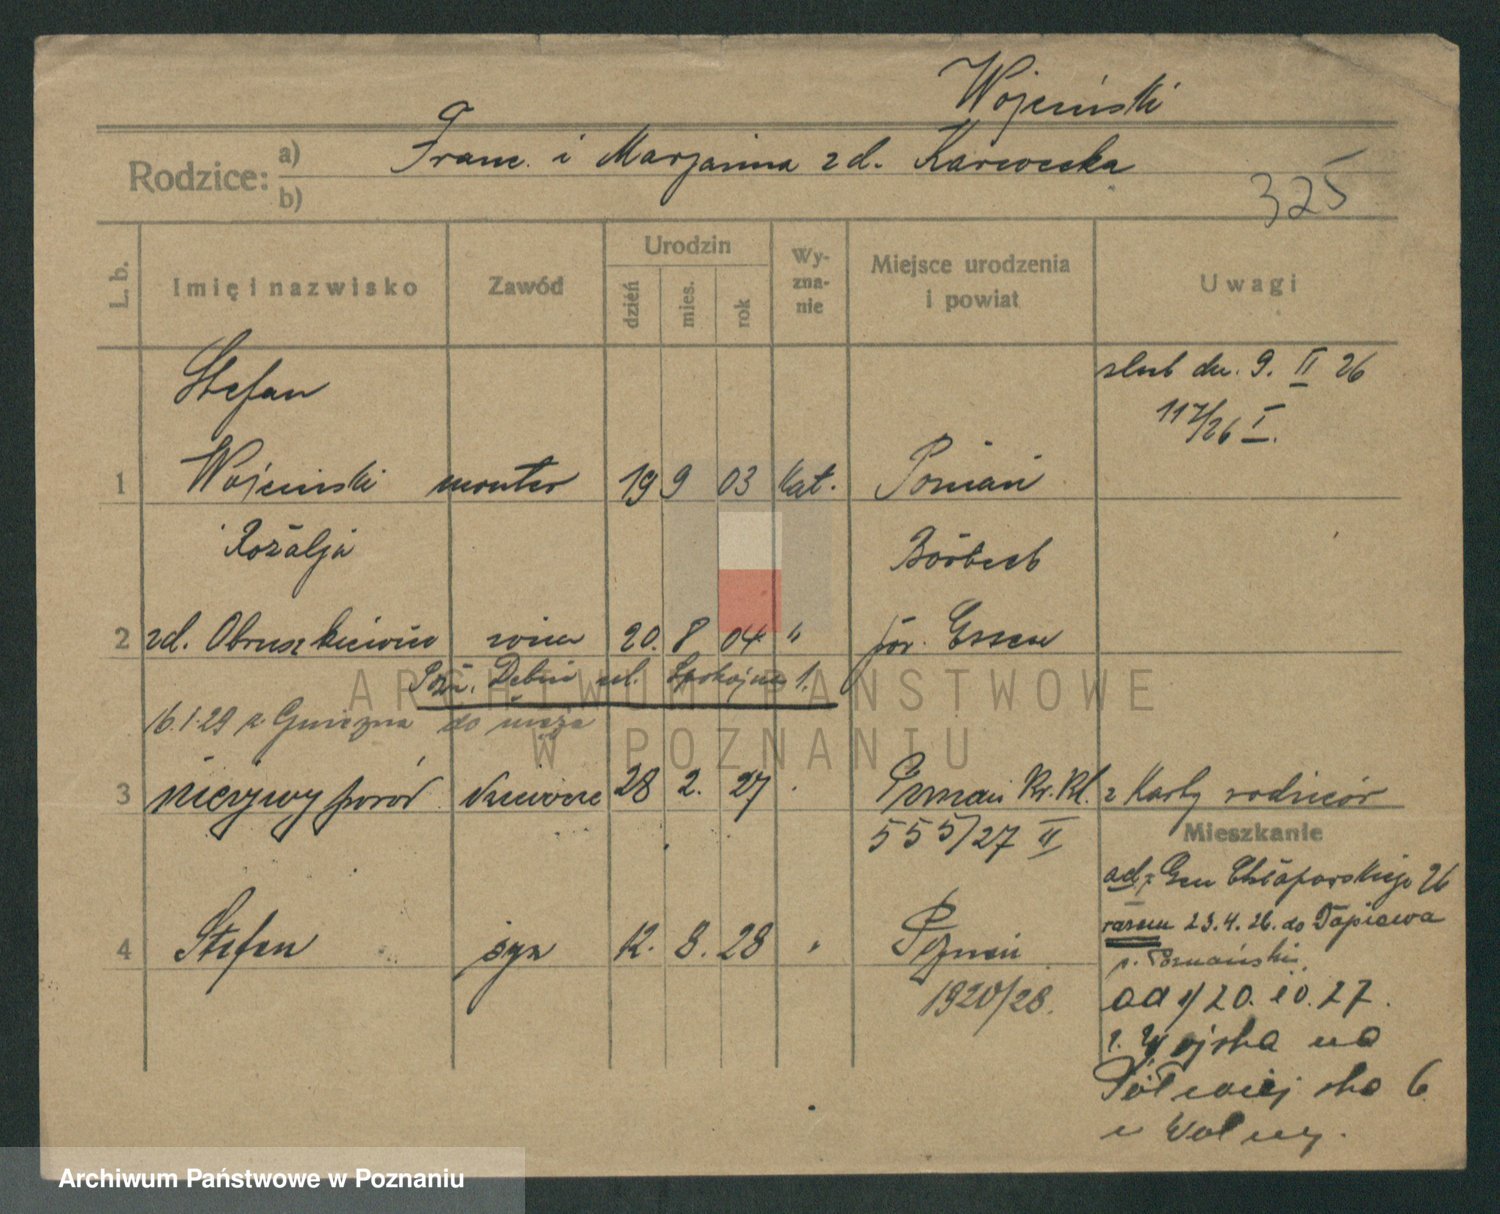 Wójciński
Rodzice: a) Franc. i Marjanna zd. Karwecka
b)
325
L. b.
Imię i nazwisko
Zawód
Urodzin
dzień
mies.
rok
Wy-
zna-
nie
Miejsce urodzenia
i powiat
Uwagi
Stefan
ślub dn. 9. II 26
117/26 I.
1 Wójciński monter 19 9 03 kat. Poznań
Rozalja Borbeck
2 zd. Obruszkiewicz żona 20. 8 04 " por. Essen
Pozn. Dębin ul. Spokojna 1.
16.1.29 z Gniezna do męża
3 nieżywy poród dziewcze 28 2. 27 Poznań Kr. Kl. z Karty rodziców
555/27 II
Mieszkanie
od Gen Chłapowskiego 26
razem 23.4.26. do Tapiewa
p. Poznański
4 Stefan syn 12. 8. 28 " Poznań
1920/28.
od 20. 10. 27.
z Wojska na
Półwiejska 6
u Wolny.
ARCHIWUM PAŃSTWOWE
W POZNANIU
Archiwum Państwowe w Poznaniu